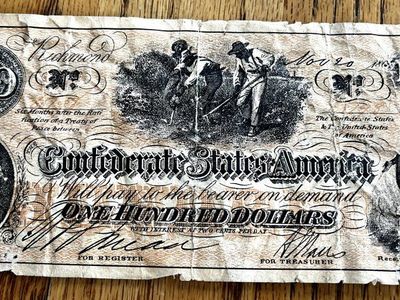 Richmond
Nov 20
No.
No.
Six Months after the Rati
fication of a Treaty of
Peace between
The Confederate States
& The United States
of America
Confederate States of America
Will pay to the bearer on demand
ONE HUNDRED DOLLARS
WITH INTEREST AT TWO CENTS PER DAY
FOR REGISTER
FOR TREASURER
Rece